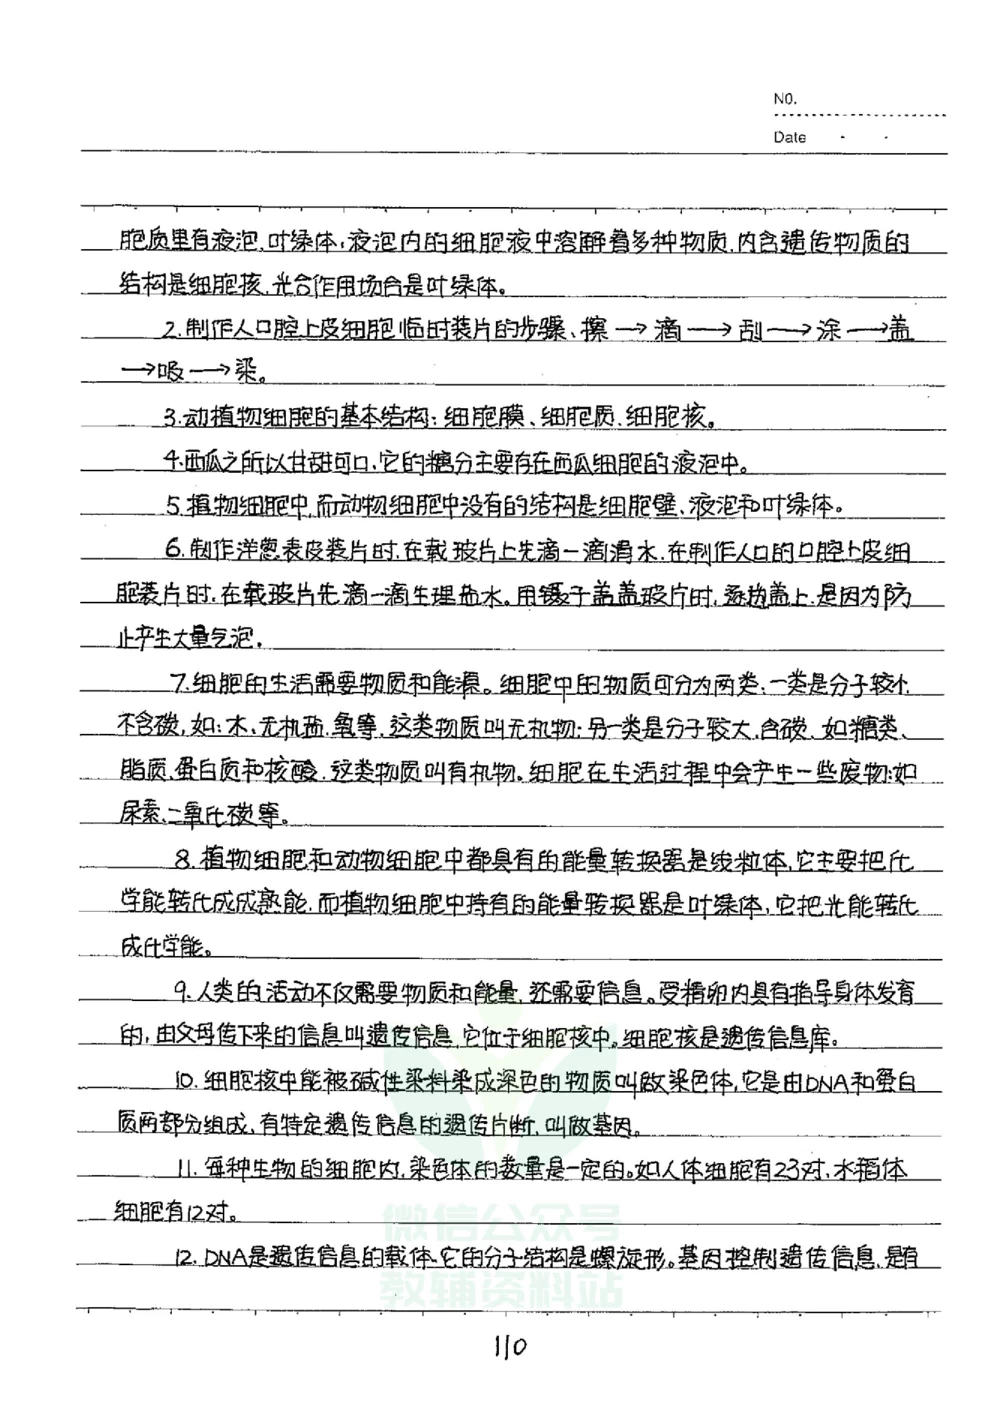 NO.
Date
胞质里有液泡、叶绿体,液泡内的细胞液中溶解着多种物质,内含遗传物质的
结构是细胞核,光合作用场合是叶绿体。
2.制作人口腔上皮细胞临时装片的步骤、擦→滴→刮→涂→盖
→吸→染。
3.动植物细胞的基本结构:细胞膜、细胞质、细胞核。
4.西瓜之所以甘甜可口,它的糖分主要存在西瓜细胞的液泡中。
5.植物细胞中,而动物细胞中没有的结构是细胞壁、液泡和叶绿体。
6.制作洋葱表皮装片时,在载玻片上先滴一滴清水,在制作人口的口腔上皮细
胞装片时,在载玻片先滴一滴生理盐水。用镊子盖盖玻片时,逐边盖上,是因为防
止产生大量气泡.
7.细胞的生活需要物质和能源。细胞中的物质可分为两类,一类是分子较小
不含碳,如:水、无机盐、氧等,这类物质叫无机物;另一类是分子较大,含碳,如糖类、
脂质、蛋白质和核酸,这类物质叫有机物。细胞在生活过程中会产生一些废物;如
尿素、二氧化碳等。
8.植物细胞和动物细胞中都具有的能量转换器是线粒体,它主要把化
学能转化成成熟能,而植物细胞中持有的能量转换器是叶绿体,它把光能转化
成化学能。
9.人类的活动不仅需要物质和能量,还需要信息。受精卵内具有指导身体发育
的,由父母传下来的信息叫遗传信息,它位于细胞核中。细胞核是遗传信息库。
10.细胞核中能被碱性染料染成深色的物质叫做染色体,它是由DNA和蛋白
质两部分组成,有特定遗传信息的遗传片断,叫做基因。
11.每种生物的细胞内,染色体的数量是一定的。如人体细胞有23对,水稻体
细胞有12对。
12.DNA是遗传信息的载体,它的分子结构是螺旋形。基因控制遗传信息,是有
微信公众号
教辅资料站
110